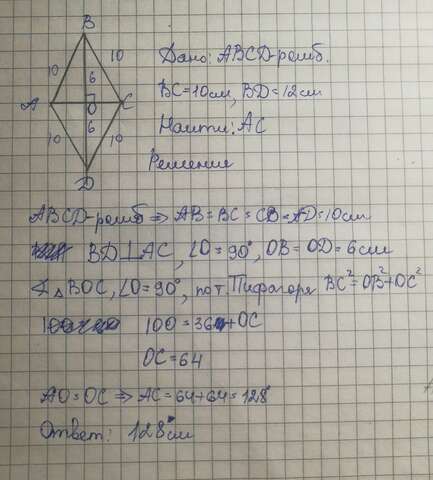 B
10 10
6
A O C
6
10 10
D
Дано: ABCD-ромб.
BC=10см, BD=12см
Найти: AC
Решение
ABCD-ромб ⇒ AB=BC=CB=AD=10см
BD⊥AC, ∠O=90°, OB=OD=6см
△BOC, ∠O=90°, по т. Пифагора BC²=OB²+OC²
100=36+OC
OC=64
AO=OC ⇒ AC=64+64=128
Ответ: 128см